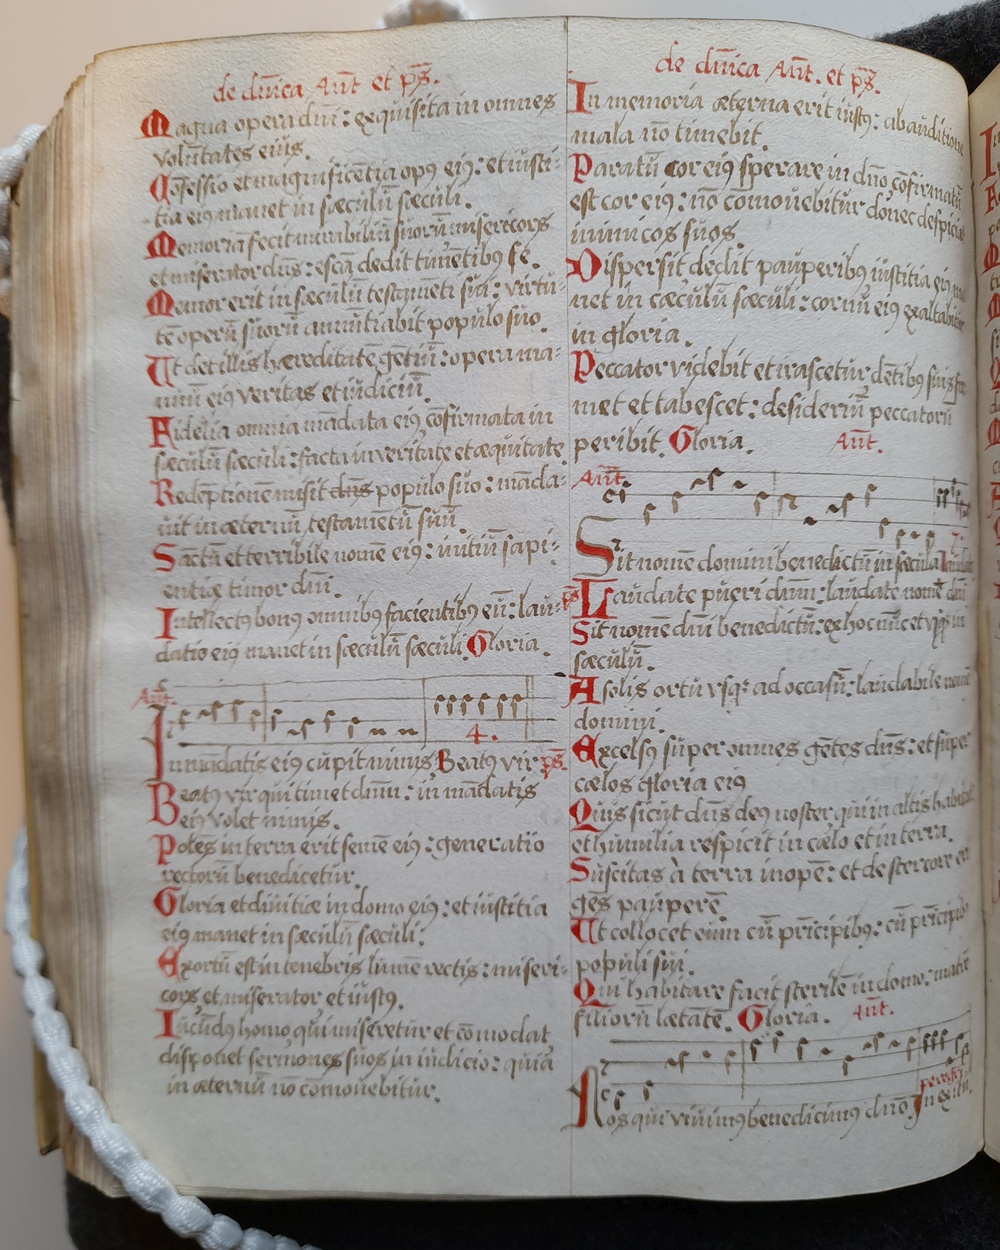 de dn̄ica Ant̄. et p̄s.
Magna opera dn̄i: exquisita in omnes
volūtates eius.
Cōfessio et magnificētia opꝰ eiꝰ: et iusti-
tia eiꝰ manet in sæculū sæculi.
Memoriā fecit mirabiliū suorū misericors
et miserator dn̄s: escā dedit timētibꝰ se.
Memor erit in sæculū testamēti sui: virtu-
tē operū suorū annūtiabit populo suo.
Ut det illis hæreditatē gētiū: opera ma-
nuū eiꝰ veritas et iudiciū.
Fidelia omnia mādata eiꝰ cōfirmata in
sæculū sæculi: facta in veritate et æquitate
Redēptionē misit dn̄s populo suo: māda-
vit in æternū testamentū suū.
Sāctū et terribile nomē eiꝰ: initiū sapi-
entiæ timor dn̄i.
Intellectꝰ bonꝰ omnibꝰ facientibꝰ eū: lau-
datio eiꝰ manet in sæculū sæculi. Gloria.
Ant̄.
4.
In mādatis eiꝰ cupit nimis Beatꝰ vir p̄s.
Beatꝰ vir qui timet dn̄m: in mādatis
eiꝰ volet nimis.
Potēs in terra erit semē eiꝰ: generatio
rectorū benedicetur.
Gloria et divitiæ in domo eiꝰ: et iustitia
eiꝰ manet in sæculū sæculi.
Exortū est in tenebris lumē rectis: miseri-
cors et miserator et iustꝰ.
Iucūdꝰ homo qui miseretur et cōmodat
disponet sermones suos in iudicio: quia
in æternū nō cōmovebitur.
de dn̄ica Ant̄. et p̄s.
In memoria æterna erit iustꝰ: ab auditione
mala nō timebit.
Paratū cor eiꝰ sperare in dn̄o cōfirmatū
est cor eiꝰ: nō cōmovebitur donec despiciat
inimicos suos.
Dispersit dedit pauperibꝰ iustitia eiꝰ ma
net in cæculū sæculi: cornu eiꝰ exaltabitur
in gloria.
Peccator videbit et irascetur dētibꝰ suis fre
met et tabescet: desideriū peccatorū
peribit. Gloria. Ant̄.
Ant̄.
Sit nomē domini benedictū in sæcula
p̄s Laudate pueri dn̄m: laudate nomē dn̄i
Sit nomē dn̄i benedictū: ex hoc nūc et usq̄ in
sæculū.
A solis ortu usqꝫ ad occasū: laudabile nomē
domini.
Excelsꝰ super omnes gētes dn̄s: et super
cælos gloria eiꝰ
Quis sicut dn̄s deꝰ noster qui in altis habitat
et humilia respicit in cælo et in terra.
Suscitas à terra inopē: et de stercore eri
gēs pauperē.
Ut collocet eum cū pricipibꝰ: cū pricipibꝰ
populi sui.
Qui habitare facit sterilē in domo: matrē
filiorū lætātē. Gloria. Ant̄.
Nos qui vivimꝰ benedicimꝰ dn̄o. In exitu.